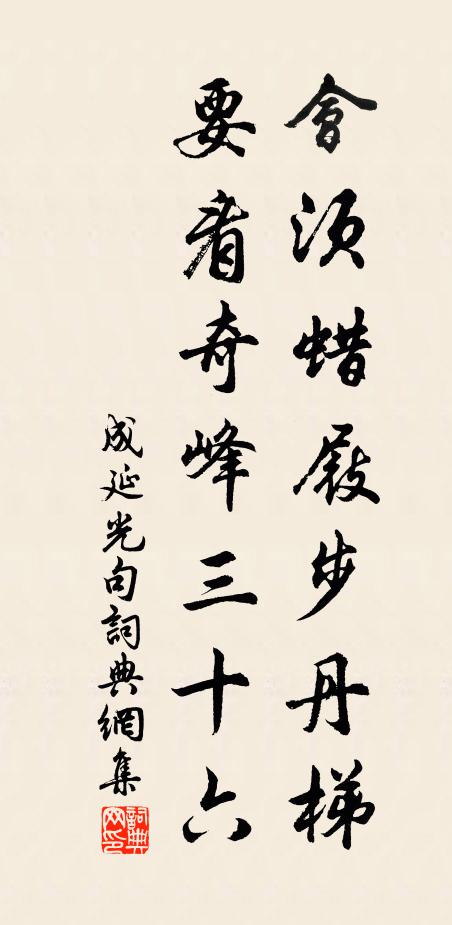 會須蜡屐步丹梯
要看奇峰三十六
成延光句詞典網集
詞典网印